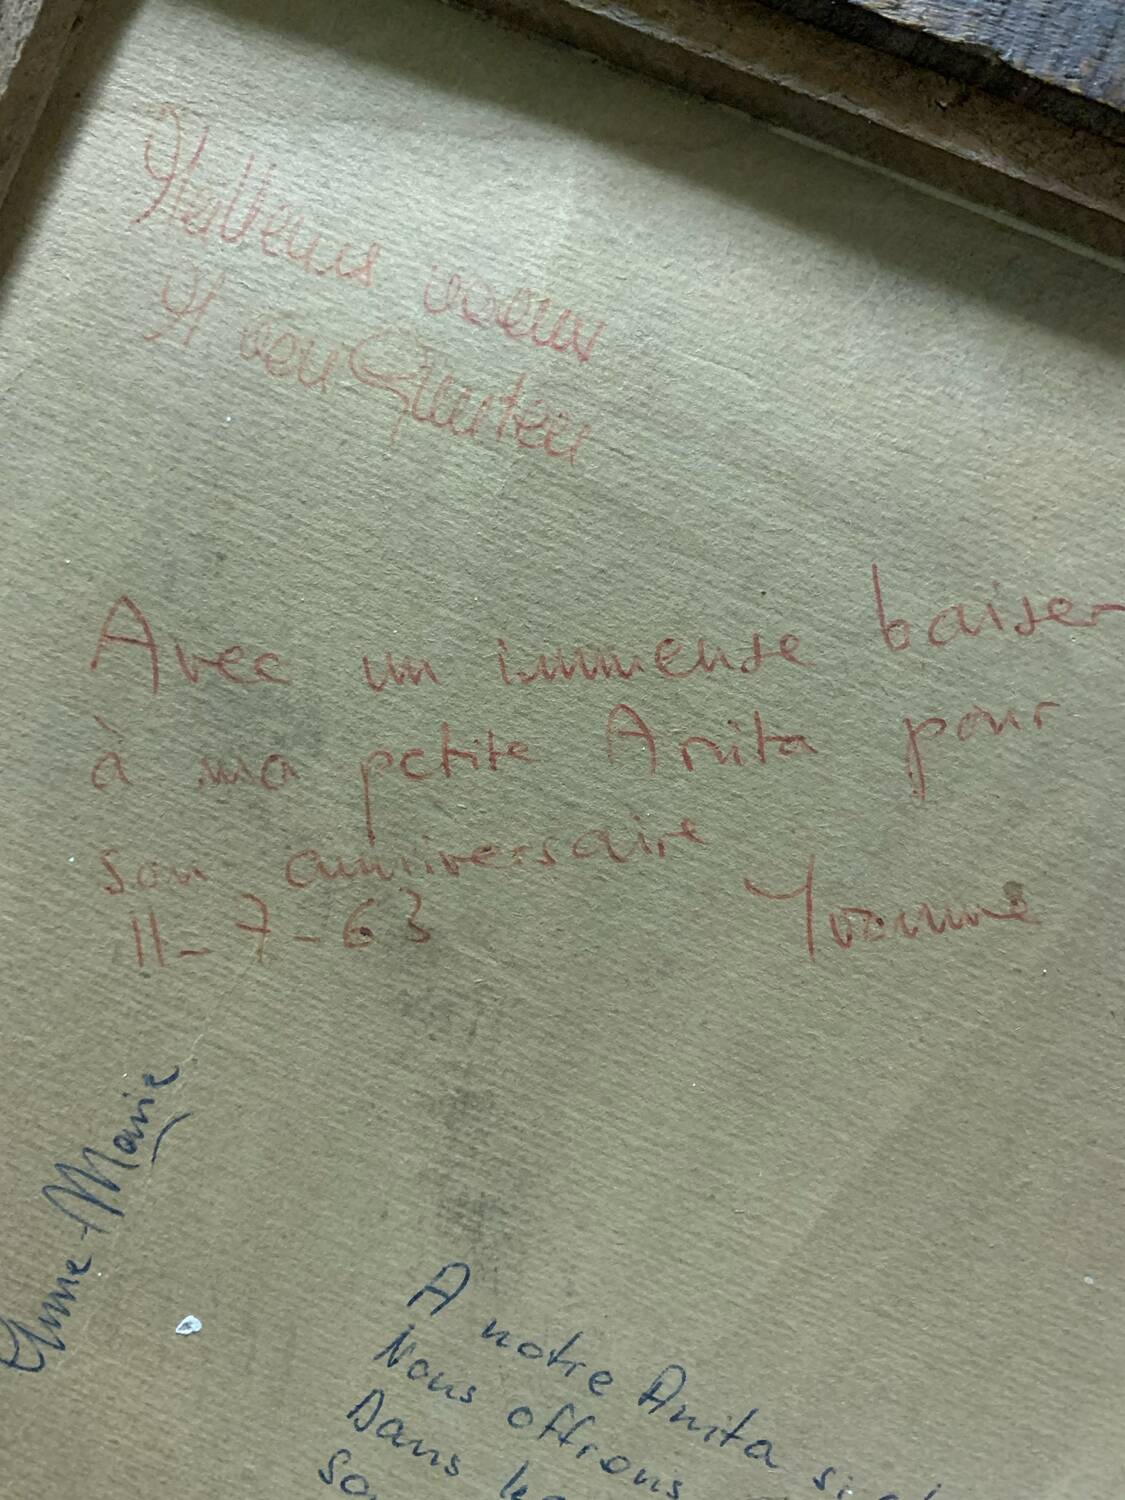 Meilleurs voeux
Avec un immense baiser
à ma petite Anita pour
son anniversaire
11-7-63 Yvonne
Anne-Marie
A notre Anita
Nous offrons
Dans